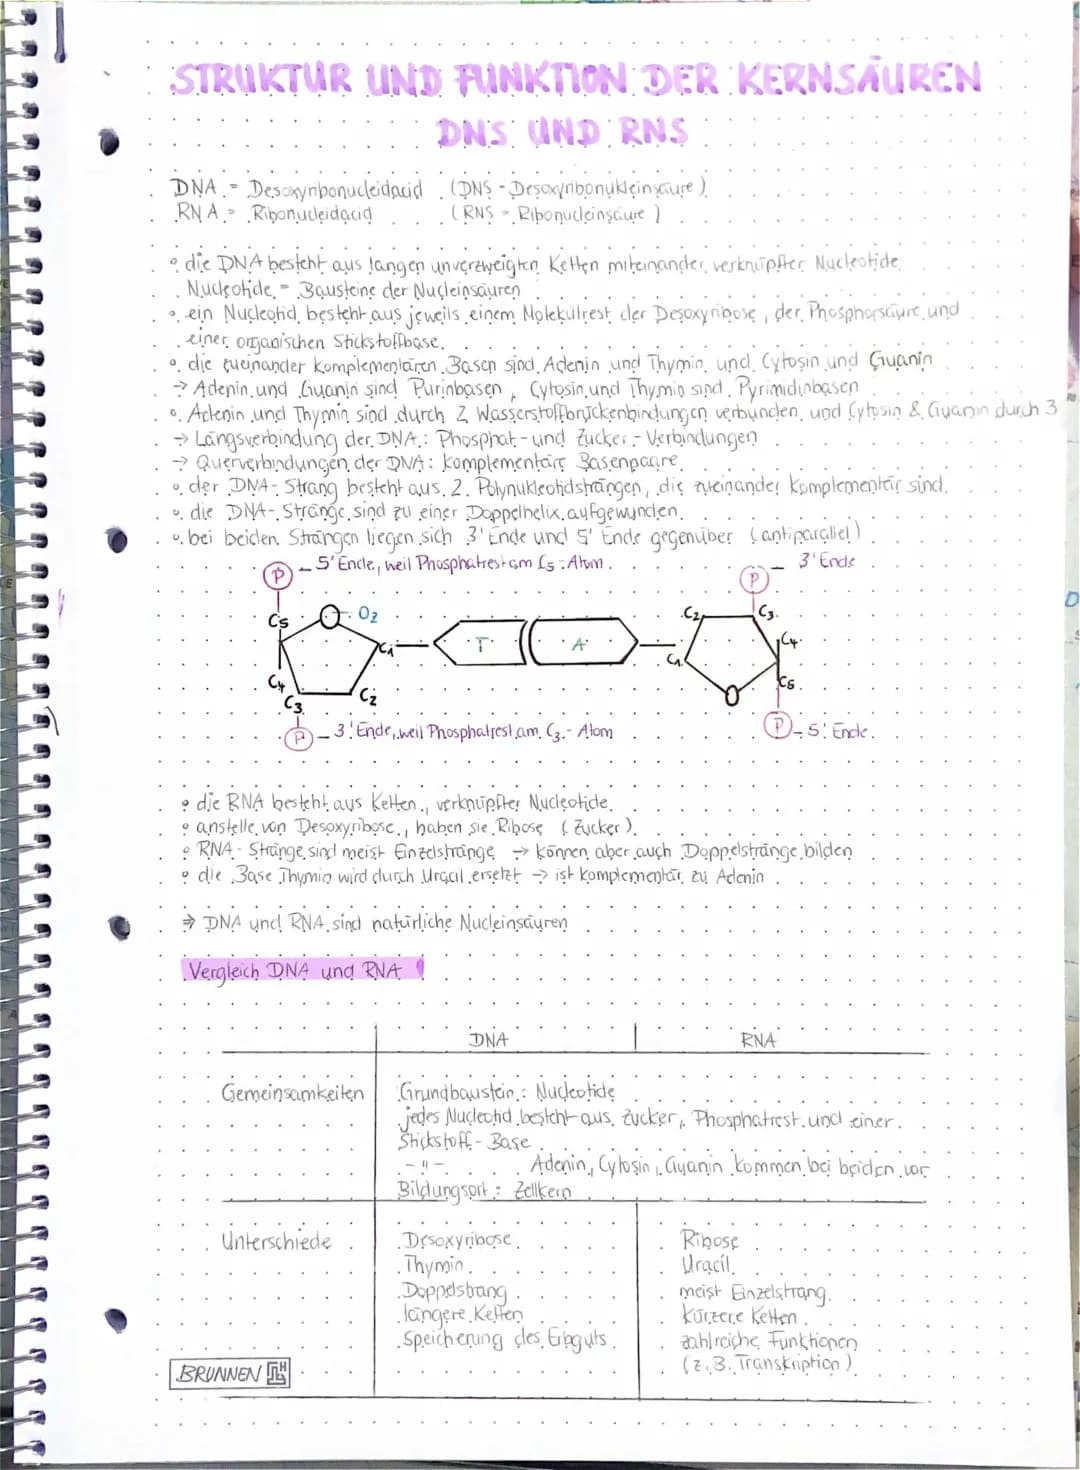 STRUKTUR UND FUNKTION DER KERNSÄUREN
DNS UND RNS
DNA = Desoxyribonucleidacid (DNS - Desoxyribonukleinsäure)
RNA = Ribonucleidacid (RNS = Ribonucleinsäure)
• die DNA besteht aus langen unverzweigten Ketten miteinander verknüpfter Nucleotide
Nucleotide = Bausteine der Nucleinsäuren
• ein Nucleotid besteht aus jeweils einem Molekülrest der Desoxyribose, der Phosphorsäure und
einer organischen Stickstoffbase.
• die zueinander komplementären Basen sind Adenin und Thymin, und Cytosin und Guanin
→ Adenin und Guanin sind Purinbasen, Cytosin und Thymin sind Pyrimidinbasen
• Adenin und Thymin sind durch 2 Wasserstoffbrückenbindungen verbunden, und Cytosin & Guanin durch 3
→ Längsverbindung der DNA: Phosphat- und Zucker - Verbindungen
→ Querverbindungen der DNA: komplementäre Basenpaare
• der DNA- Strang besteht aus 2 Polynukleotidsträngen, die zueinander komplementär sind.
• die DNA- Stränge sind zu einer Doppelhelix aufgewunden.
• bei beiden Strängen liegen sich 3' Ende und 5' Ende gegenüber (antiparallel)
P - 5' Ende, weil Phosphatrest am C5 - Atom
P - 3' Ende
C5 O2 C2 C3
C1 T A C1 C4
C4 C3 C2 C5
P - 3' Ende, weil Phosphatrest am C3 - Atom
P - 5' Ende
• die RNA besteht aus Ketten, verknüpfter Nucleotide
• anstelle von Desoxyribose, haben sie Ribose (Zucker)
• RNA - Stränge sind meist Einzelstränge → können aber auch Doppelstränge bilden
• die Base Thymin wird durch Uracil ersetzt → ist komplementär zu Adenin
⇒ DNA und RNA sind natürliche Nucleinsäuren
Vergleich DNA und RNA
DNA RNA
Gemeinsamkeiten Grundbaustein: Nucleotide
jedes Nucleotid besteht aus Zucker, Phosphatrest und einer
Stickstoff - Base
-"- Adenin, Cytosin, Guanin kommen bei beiden vor
Bildungsort: Zellkern
Unterschiede Desoxyribose Ribose
Thymin Uracil
Doppelstrang meist Einzelstrang
längere Ketten kürzere Ketten
Speicherung des Erbguts zahlreiche Funktionen
(z.B. Transkription)
BRUNNEN